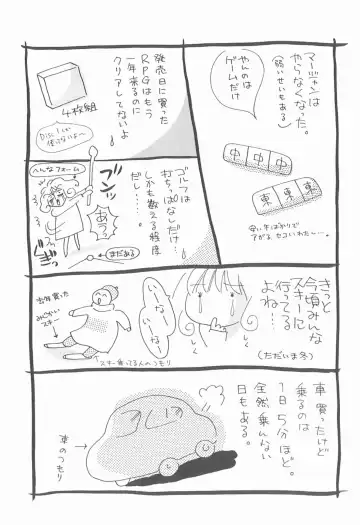 マージャンは
やらなくなった。
(弱いせいもある)
やんのは
ゲームだけ
中 中 中
東 東 東
安い手ばかりで
アガる、セコいわた〜し。
発売日に買った
RPGはもう
一年来るのに
クリアしてないよ
4枚組
DISC1しか
使ってないよ〜
ゴルフは
打ちっぱなしだけ…
しかも数える程度
だし…。
へんなフォーム
ブンッ
あうっ
ブンッ
まだある
きっと
今頃みんな
スキーに
行ってる
よね…
(ただいま冬)
いーなー
いーなー
去年買った
みじかい
スキー
スキー乗ってる人のつもり
車買ったけど
乗るのは
1日5分ほど。
全然乗んない
日もある。
車のつもり→